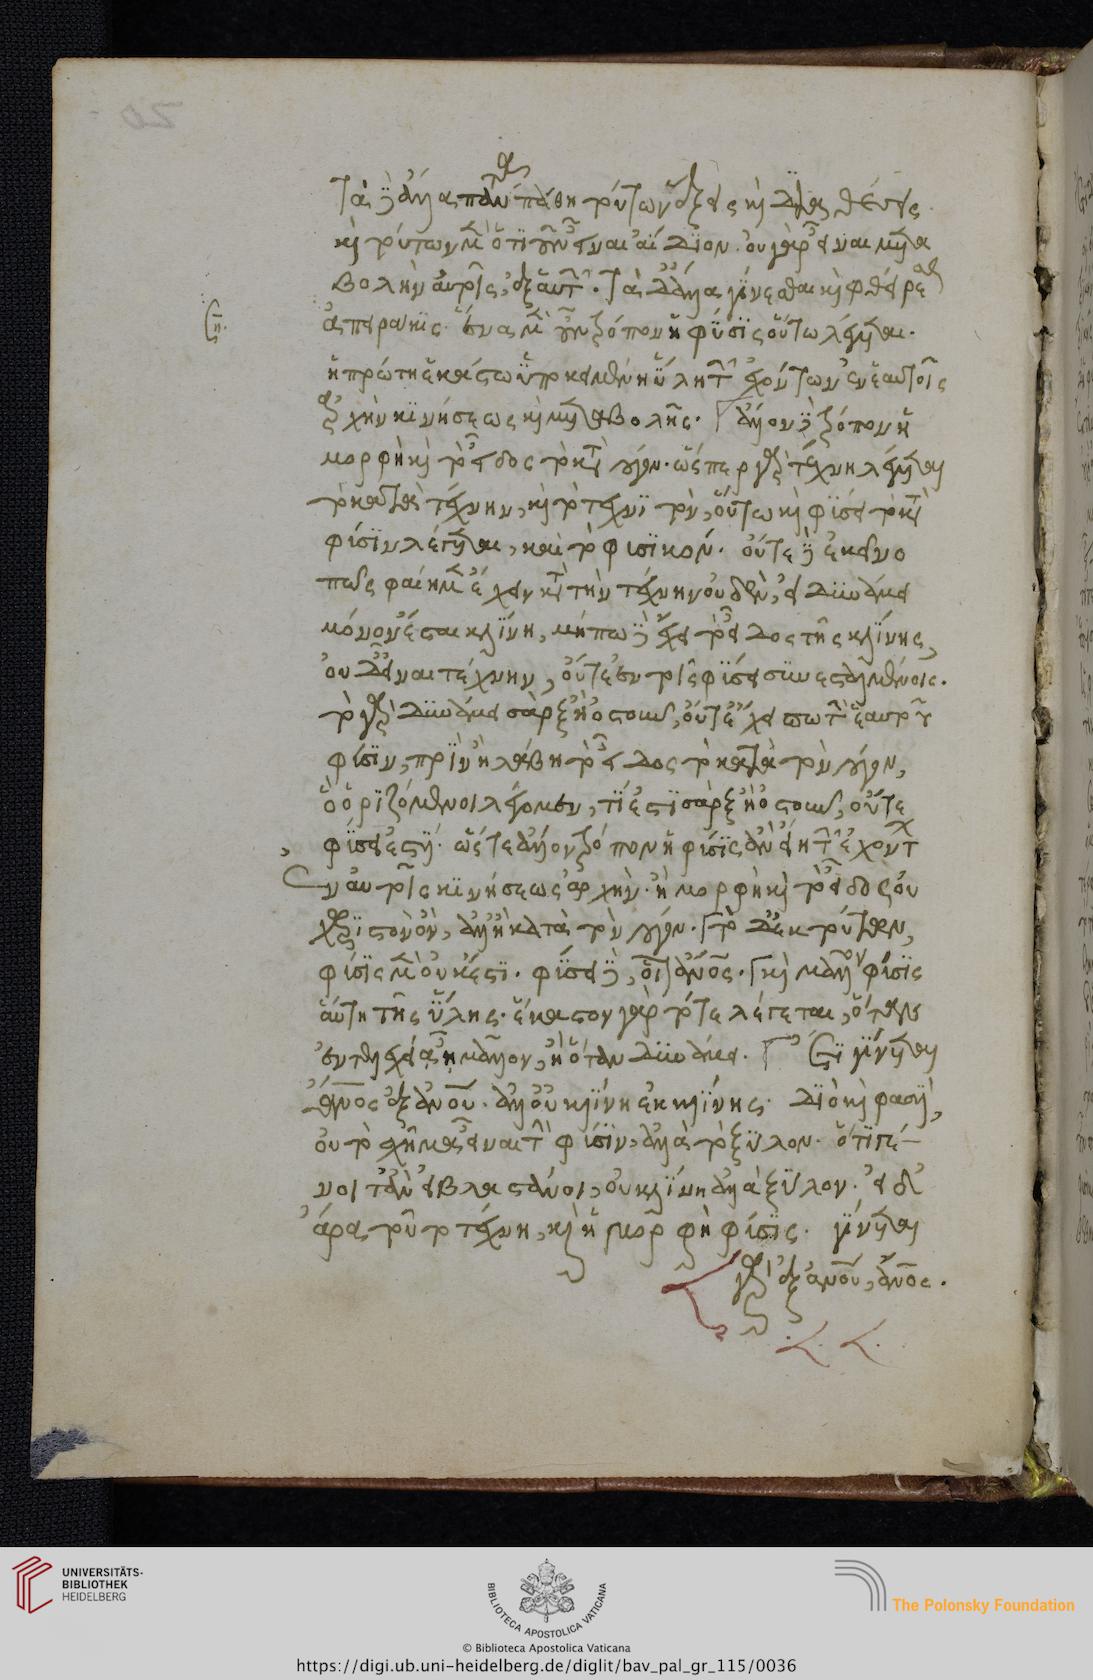 τὰ δὲ ἄλλα πάντα πάθη τούτων ἕξεις καὶ διαθέσεις
καὶ τούτων μὲν ὅτι οὖν εἶναι ἀΐδιον. οὐ γὰρ εἶναι μετα
βολὴν αὐτοῖς, ἐξ αὐτῶν. τὰ δ' ἄλλα γίνεσθαι καὶ φθείρεσθαι
ἀπειράκις. ἕνα μὲν οὖν τρόπον ἡ φύσις οὕτω λέγεται.
ἡ πρώτη ἑκάστω ὑποκειμένη ὕλη τῶν ἐχόντων ἐν ἑαυτοῖς
ἀρχὴν κινήσεως καὶ μεταβολῆς. ἄλλον δὲ τρόπον ἡ
μορφὴ καὶ τὸ εἶδος τὸ κατὰ τὸν λόγον. ὥσπερ γὰρ τέχνη λέγεται
τὸ κατὰ τέχνην, καὶ τὸ τεχνικόν, οὕτω καὶ φύσει τὸ κατὰ
φύσιν λέγεται, καὶ τὸ φυσικόν. οὔτε δὲ ἐκεῖνο
πως φαίημεν ἔχειν κατὰ τὴν τέχνην οὐδὲν, εἰ δυνάμει
μόνον ἔσται κλίνη, μήπω δὲ ἔχει τὸ εἶδος τῆς κλίνης,
οὐδ' εἶναι τέχνην, οὔτε ἐν τοῖς φύσει συνεσταμένοις.
τὸ γὰρ δυνάμει σὰρξ ἢ ὀστοῦν, οὔτε ἔχει πω τὴν ἑαυτοῦ
φύσιν, πρὶν ἢ λάβη τὸ εἶδος τὸ κατὰ τὸν λόγον,
ὃ ὁριζόμενοι λέγομεν, τί ἐστι σὰρξ ἢ ὀστοῦν, οὔτε
φύσει ἐστί. ὥστε ἄλλον τρόπον ἡ φύσις ἂν εἴη τῶν ἐχόντων
ἐν αὐτοῖς κινήσεως ἀρχὴν. ἡ μορφὴ καὶ τὸ εἶδος οὐ
χωριστὸν ὂν, ἀλλ' ἢ κατὰ τὸν λόγον. τὸ δ' ἐκ τούτων,
φύσις μὲν οὐκ ἔστι. φύσει δὲ, οἷον ἄνος. καὶ μᾶλλον φύσις
αὕτη τῆς ὕλης. ἕκαστον γὰρ τότε λέγεται, ὅταν
ἐντελεχεία ἢ μᾶλλον, ἢ ὅταν δυνάμει. ἔτι γίνεται
ἄνος ἐξ ἀνου. ἀλλ' οὐ κλίνη ἐκ κλίνης. διὸ καὶ φασὶ,
οὐ τὸ σχῆμα εἶναι τὴν φύσιν, ἀλλὰ τὸ ξύλον. ὅτι γέ
νοιτ' ἂν εἰ βλαστάνοι, οὐ κλίνη ἀλλὰ ξύλον. εἰ δ'
ἄρα τοῦτο τέχνη, καὶ ἡ μορφὴ φύσις. γίνεται
γὰρ ἐξ ἀνου, ἄνος.
UNIVERSITÄTS-
BIBLIOTHEK
HEIDELBERG
BIBLIOTECA APOSTOLICA VATICANA
The Polonsky Foundation
© Biblioteca Apostolica Vaticana
https://digi.ub.uni-heidelberg.de/diglit/bav_pal_gr_115/0036